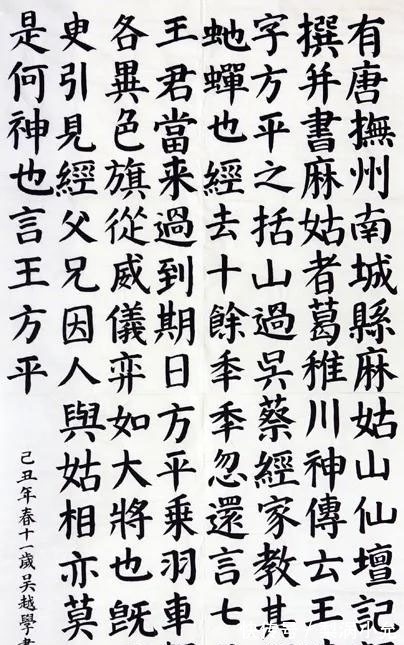 有唐撫州南城縣麻姑山仙壇記
撰并書麻姑者葛稚川神傳云王
字方平之括山過吳蔡經家教其
虵蟬也經去十餘秊秊忽還言七
王君當来過到期日方平乗羽車
各異色旗從威儀弈如大將也既
史引見經父兄因人與姑相亦莫
是何神也言王方平
己丑年春十一歲吳越學書